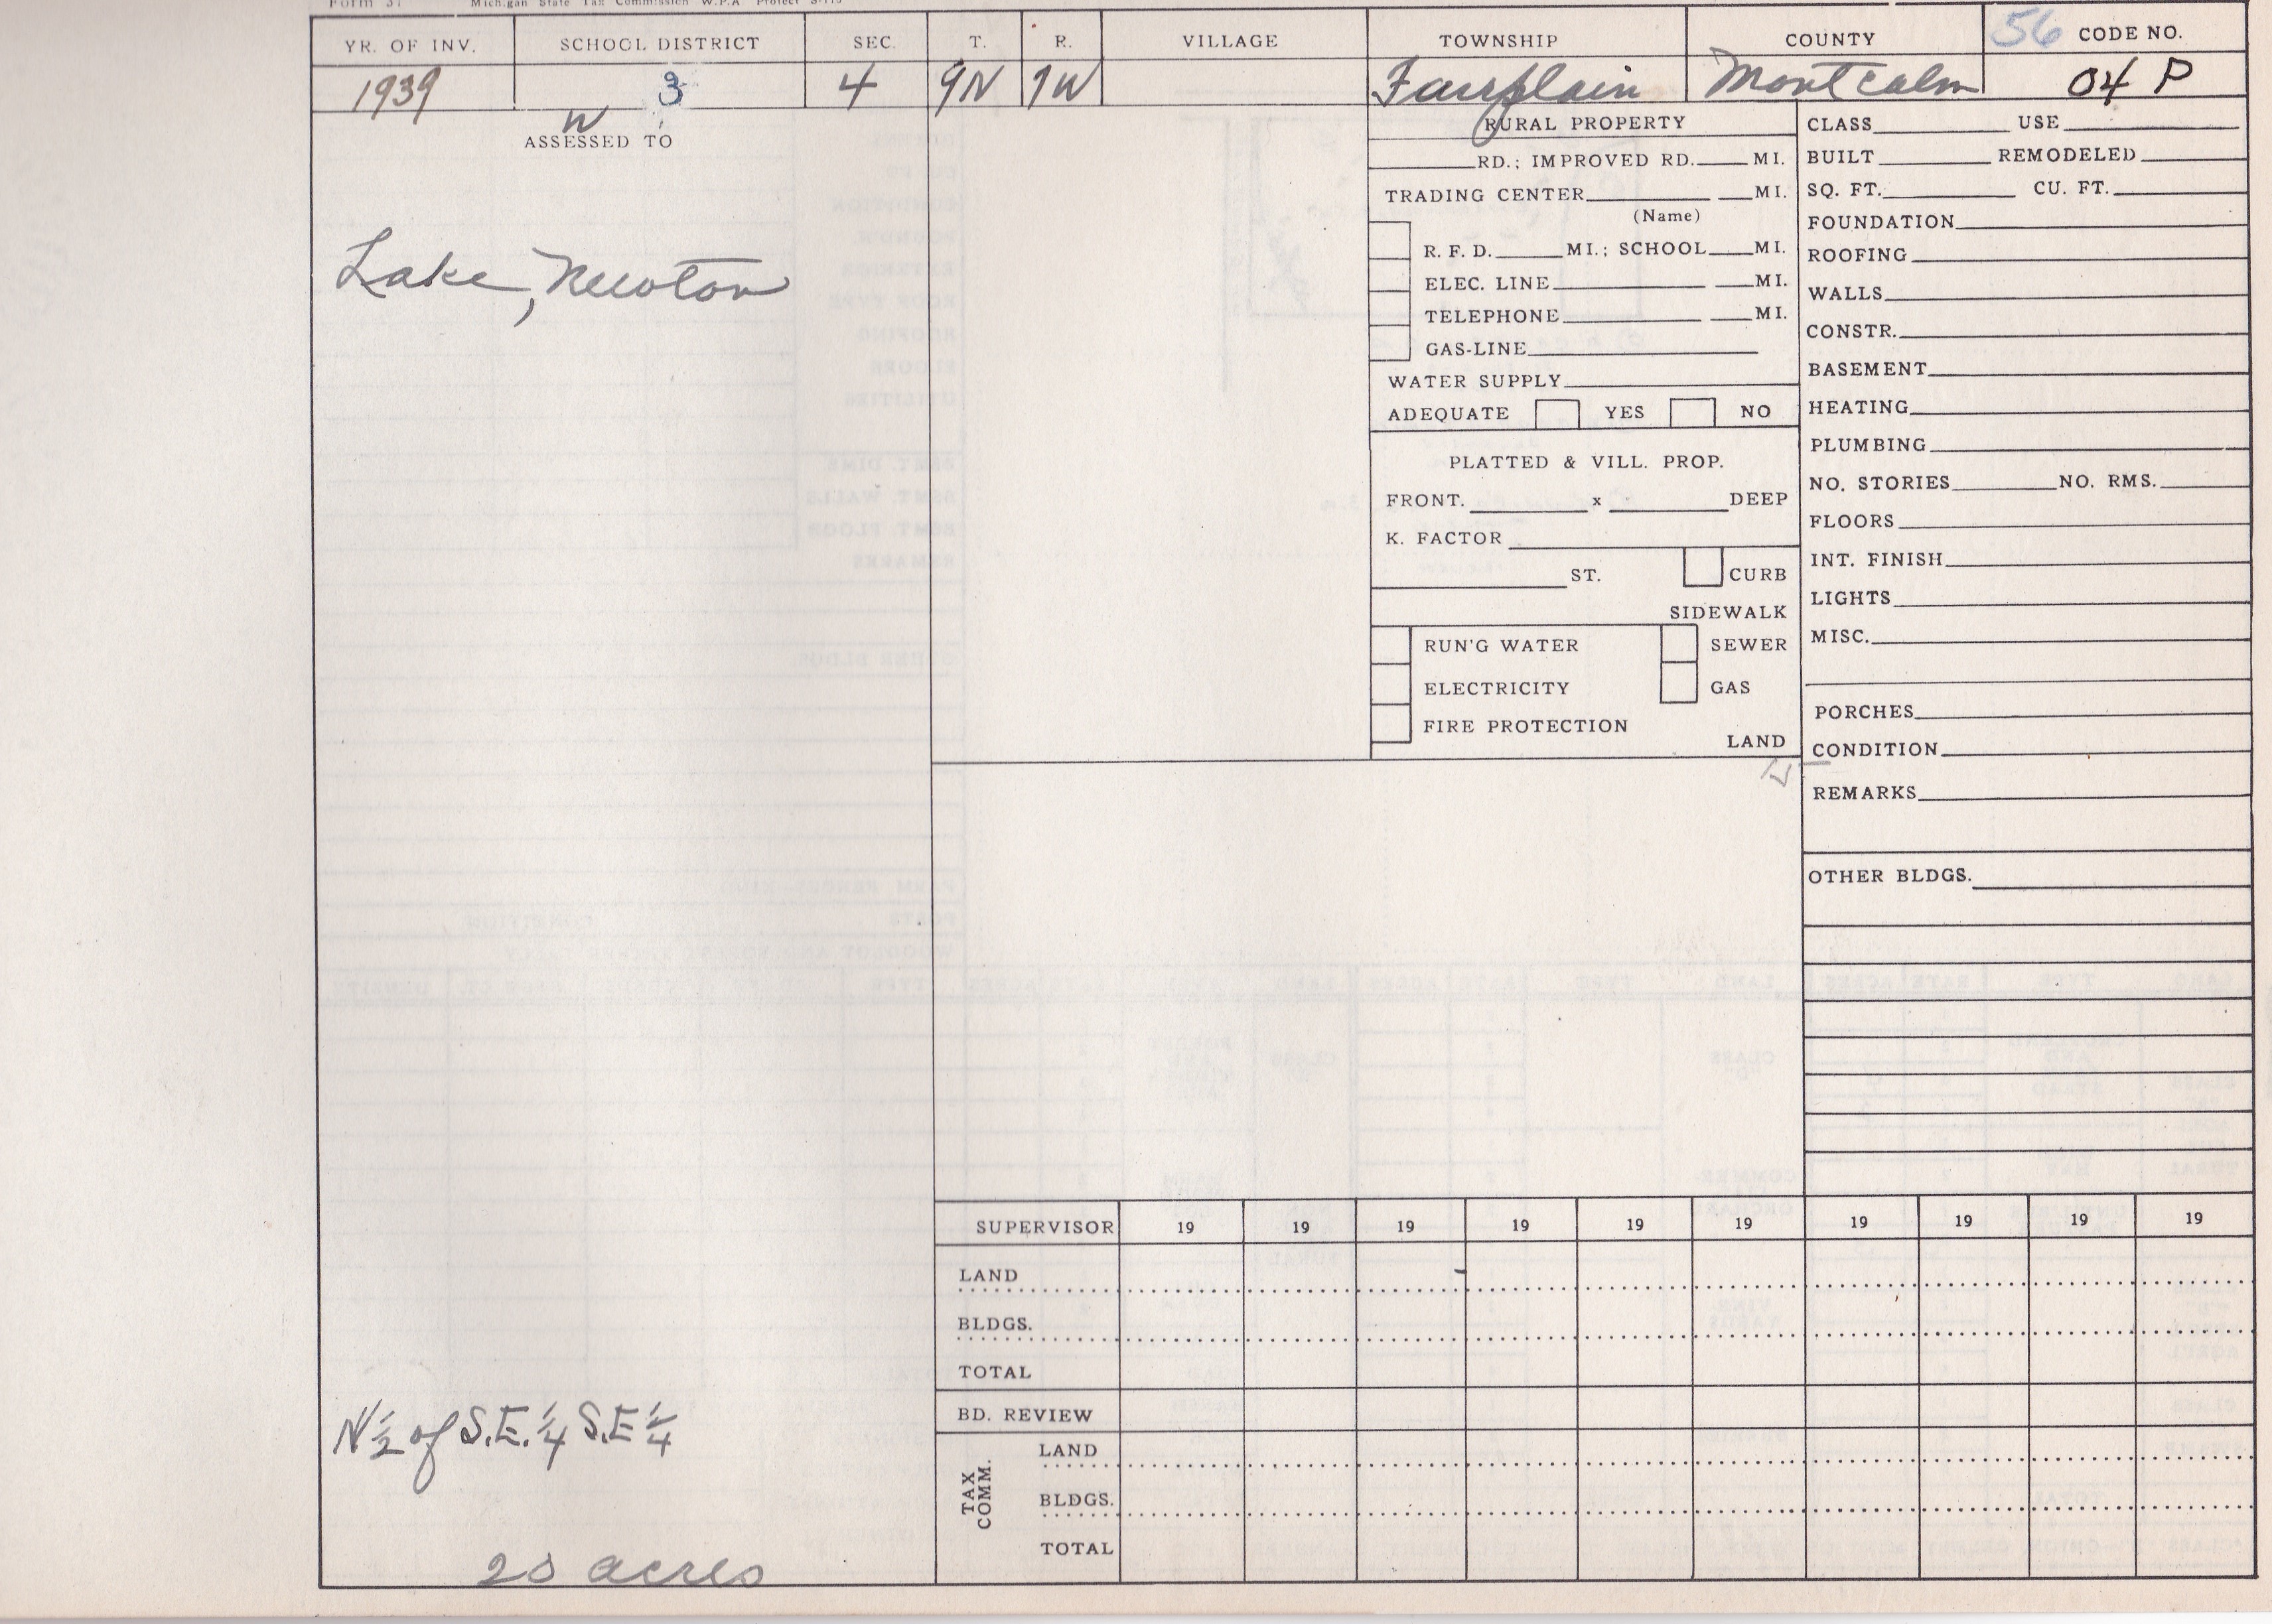 Form 31 Michigan State Tax Commission W.P.A Project
YR. OF INV. SCHOOL DISTRICT SEC. T. R. VILLAGE TOWNSHIP COUNTY 56 CODE NO.
1939 3 4 9N 7W Fairplain Montcalm 04 P
W
ASSESSED TO
Lake, Newton
N 1/2 of S.E. 1/4 S.E 1/4
20 acres
RURAL PROPERTY
RD.; IMPROVED RD. MI.
TRADING CENTER MI.
(Name)
R. F. D. MI.; SCHOOL MI.
ELEC. LINE MI.
TELEPHONE MI.
GAS-LINE
WATER SUPPLY
ADEQUATE YES NO
PLATTED & VILL. PROP.
FRONT. x DEEP
K. FACTOR
ST. CURB
SIDEWALK
RUN'G WATER SEWER
ELECTRICITY GAS
FIRE PROTECTION
LAND
CLASS USE
BUILT REMODELED
SQ. FT. CU. FT.
FOUNDATION
ROOFING
WALLS
CONSTR.
BASEMENT
HEATING
PLUMBING
NO. STORIES NO. RMS.
FLOORS
INT. FINISH
LIGHTS
MISC.
PORCHES
CONDITION
REMARKS
OTHER BLDGS.
SUPERVISOR 19 19 19 19 19 19 19 19 19 19
LAND
BLDGS.
TOTAL
BD. REVIEW
TAX COMM.
LAND
BLDGS.
TOTAL